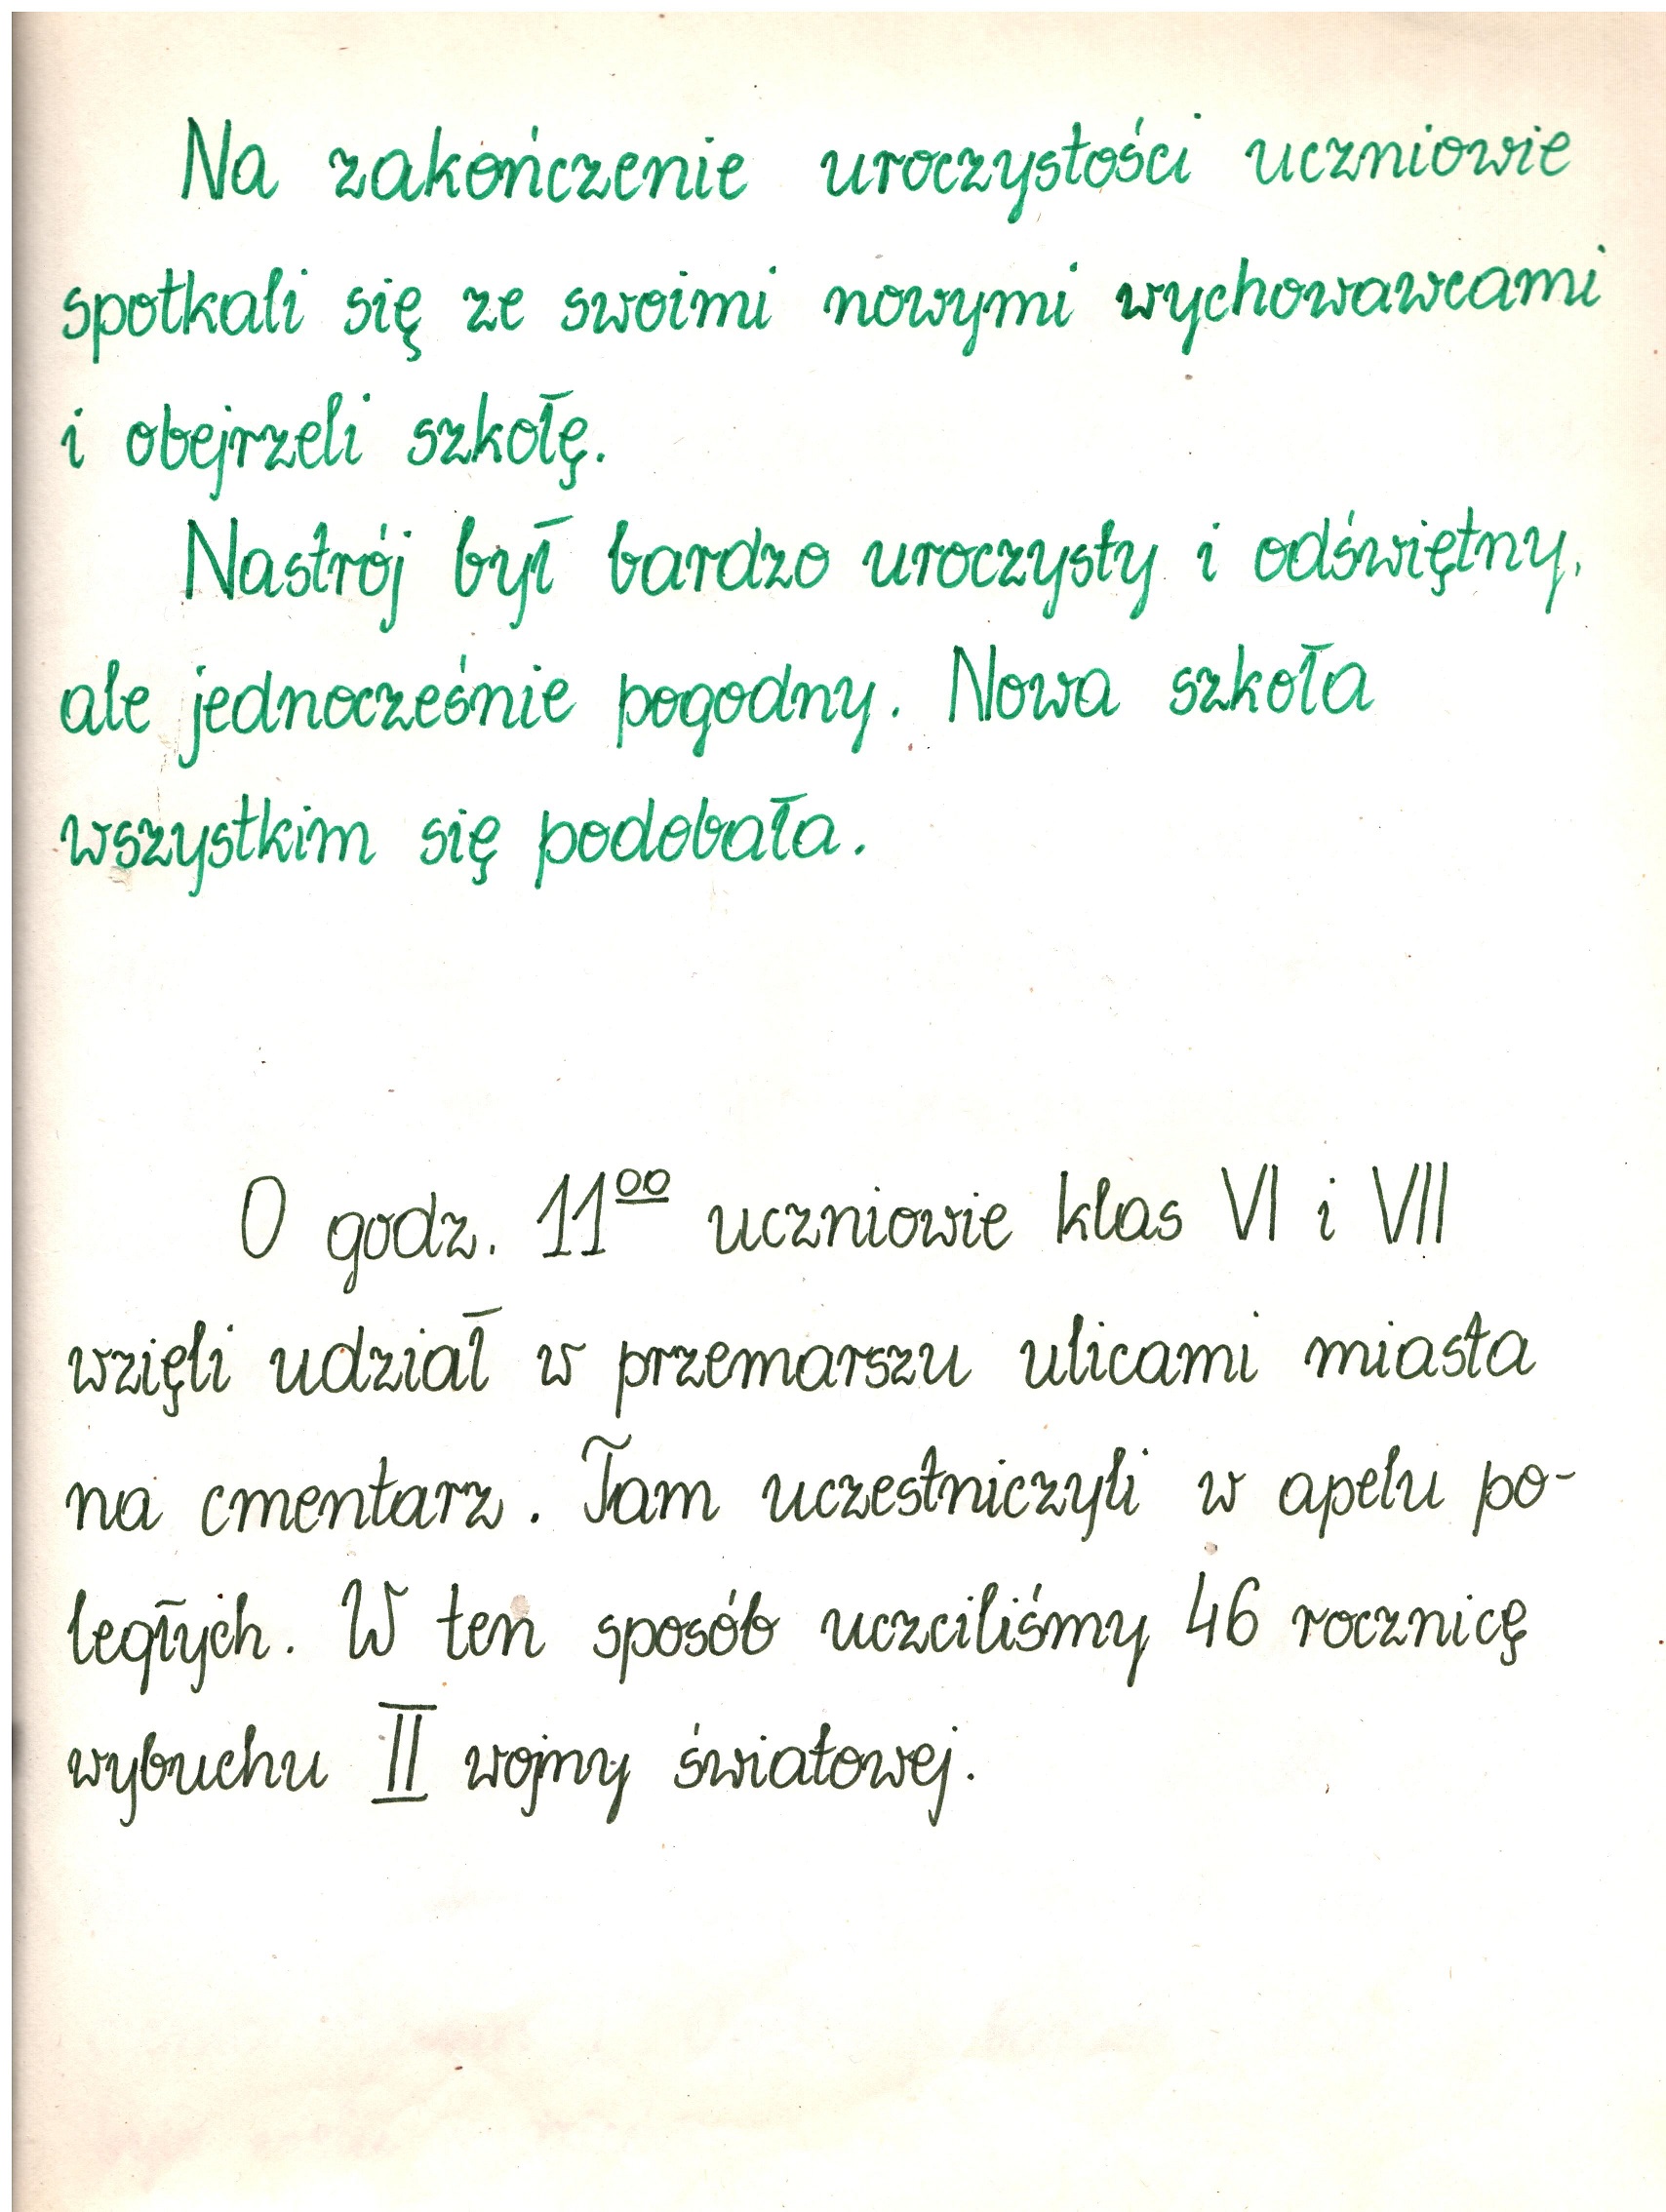 Na zakończenie uroczystości uczniowie
spotkali się ze swoimi nowymi wychowawcami
i obejrzeli szkołę.
Nastrój był bardzo uroczysty i odświętny,
ale jednocześnie pogodny. Nowa szkoła
wszystkim się podobała.
O godz. 11⁰⁰ uczniowie klas VI i VII
wzięli udział w przemarszu ulicami miasta
na cmentarz. Tam uczestniczyli w apelu po-
ległych. W ten sposób uczciliśmy 46 rocznicę
wybuchu II wojny światowej.